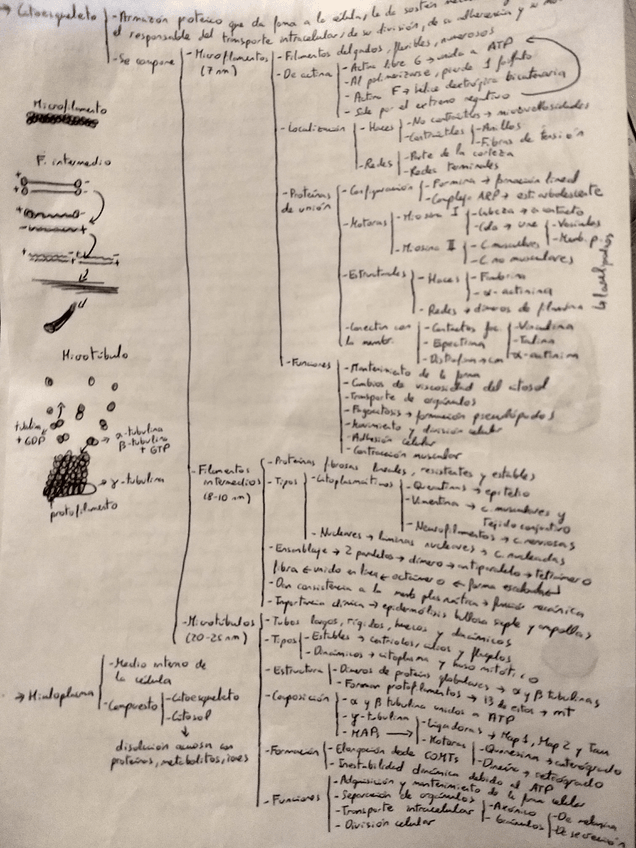 → Citoesqueleto
- Armazón proteico que da forma a la célula, le da sostén
el responsable del transporte intracelular, de su división, de su adherencia y su
- Se compone
- Microfilamentos
(7 nm)
- Filamentos delgados, flexibles, numerosos
- De actina
- Actina libre G → unido a ATP
- Al polimerizarse, pierde 1 fosfato
- Actina F → hélice dextrógira bicatenaria
- Sale por el extremo negativo
- Localización
- Haces
- No contráctiles → microvellosidades
- Contráctiles
- Anillos
- Fibras de tensión
- Redes
- Parte de la corteza
- Redes terminales
- Proteínas
de unión
- Configuración
- Formina → formación lineal
- Complejo ARP →
- Motoras
- Miosina I
- Cabeza → contacto
- Cola → une
- Vesículas
- Memb. p.
- Miosina II
- C musculares
- C no musculares
- Estructurales
- Haces
- Fimbrina
- α-actinina
- Redes → dímeros de filamina
- Conectan con
la membr.
- Contactos foc.
- Espectrina
- Distrofina
- Vinculina
- Talina
- α-actinina
- Funciones
- Mantenimiento de la forma
- Cambios de viscosidad del citosol
- Transporte de orgánulos
- Fagocitosis → formación pseudópodos
- Movimiento y división celular
- Adhesión celular
- Contracción muscular
- Filamentos
intermedios
(8-10 nm)
- Proteínas fibrosas lineales, resistentes y estables
- Tipos
- Citoplasmáticos
- Queratinas → epitelio
- Vimentina → c. musculares y
tejido conjuntivo
- Neurofilamentos → c. nerviosas
- Nucleares → láminas nucleares → c. nucleadas
- Ensamblaje → 2 paralelos → dímero → antiparalelo → tetrámero
fibra ← unido en línea ← octámero ← forma escalonada
- Dan consistencia a la memb plasmática → función mecánica
- Importancia clínica → epidermólisis bullosa simple y ampollas
- Microtúbulos
(20-25 nm)
- Tubos largos, rígidos, huecos y dinámicos
- Tipos
- Estables → centriolos, cilios y flagelos
- Dinámicos → citoplasma y huso mitótico
- Estructura
- Dímeros de proteínas globulares → α y β tubulinas
- Forman protofilamentos → 13 de estos → mT
- Composición
- α y β tubulina unidos a ATP
- γ-tubulina
- MAPs →
- Ligadoras → Map1, Map2 y Tau
- Motoras
- Quinesina → anterógrado
- Dineína → retrógrado
- Formación
- Elongación desde COMTs
- Inestabilidad dinámica debido al ATP
- Funciones
- Adquisición y mantenimiento de la forma celular
- Separación de orgánulos
- Transporte intracelular
- Axónico
- Gránulos
- De melanina
- De secreción
- División celular
Microfilamento
F. intermedio
Microtúbulo
tubulina
+ GDP
α-tubulina
β-tubulina
+ GTP
γ-tubulina
protofilamento
→ Hialoplasma
- Medio interno de
la célula
- Compuesto
- Citoesqueleto
- Citosol
disolución acuosa con
proteínas, metabolitos, iones